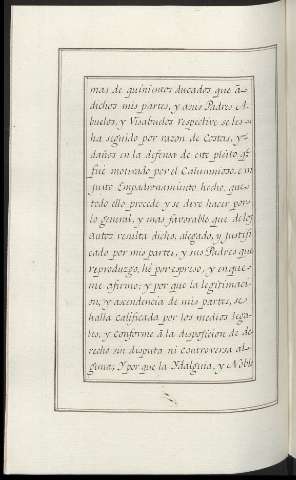 mas de quinientos ducados que â
dichos mis partes, y asus Padres A-
buelos, y Visabuelos respective se les
ha seguido por razon de Costas, y
daños en la defensa de este pleito qe.
fue motivado por el Calumnioso, e in
justo Empadronamiento hecho, que
todo ello procede y se debe hacer por
lo general, y mas favorable que delos
autos resulta dicho, alegado, y justifi
cado por mis partes, y sus Padres que
reproduzgo, hé por espreso, y en que
me afirmo; y por que la legitimaci-
on, y ascendencia de mis partes, se
halla calificada por los medios lega-
les, y conforme â la disposicion de de
recho sin disputa ni controversia al-
guna; Y por que la Ydalguia, y Noble